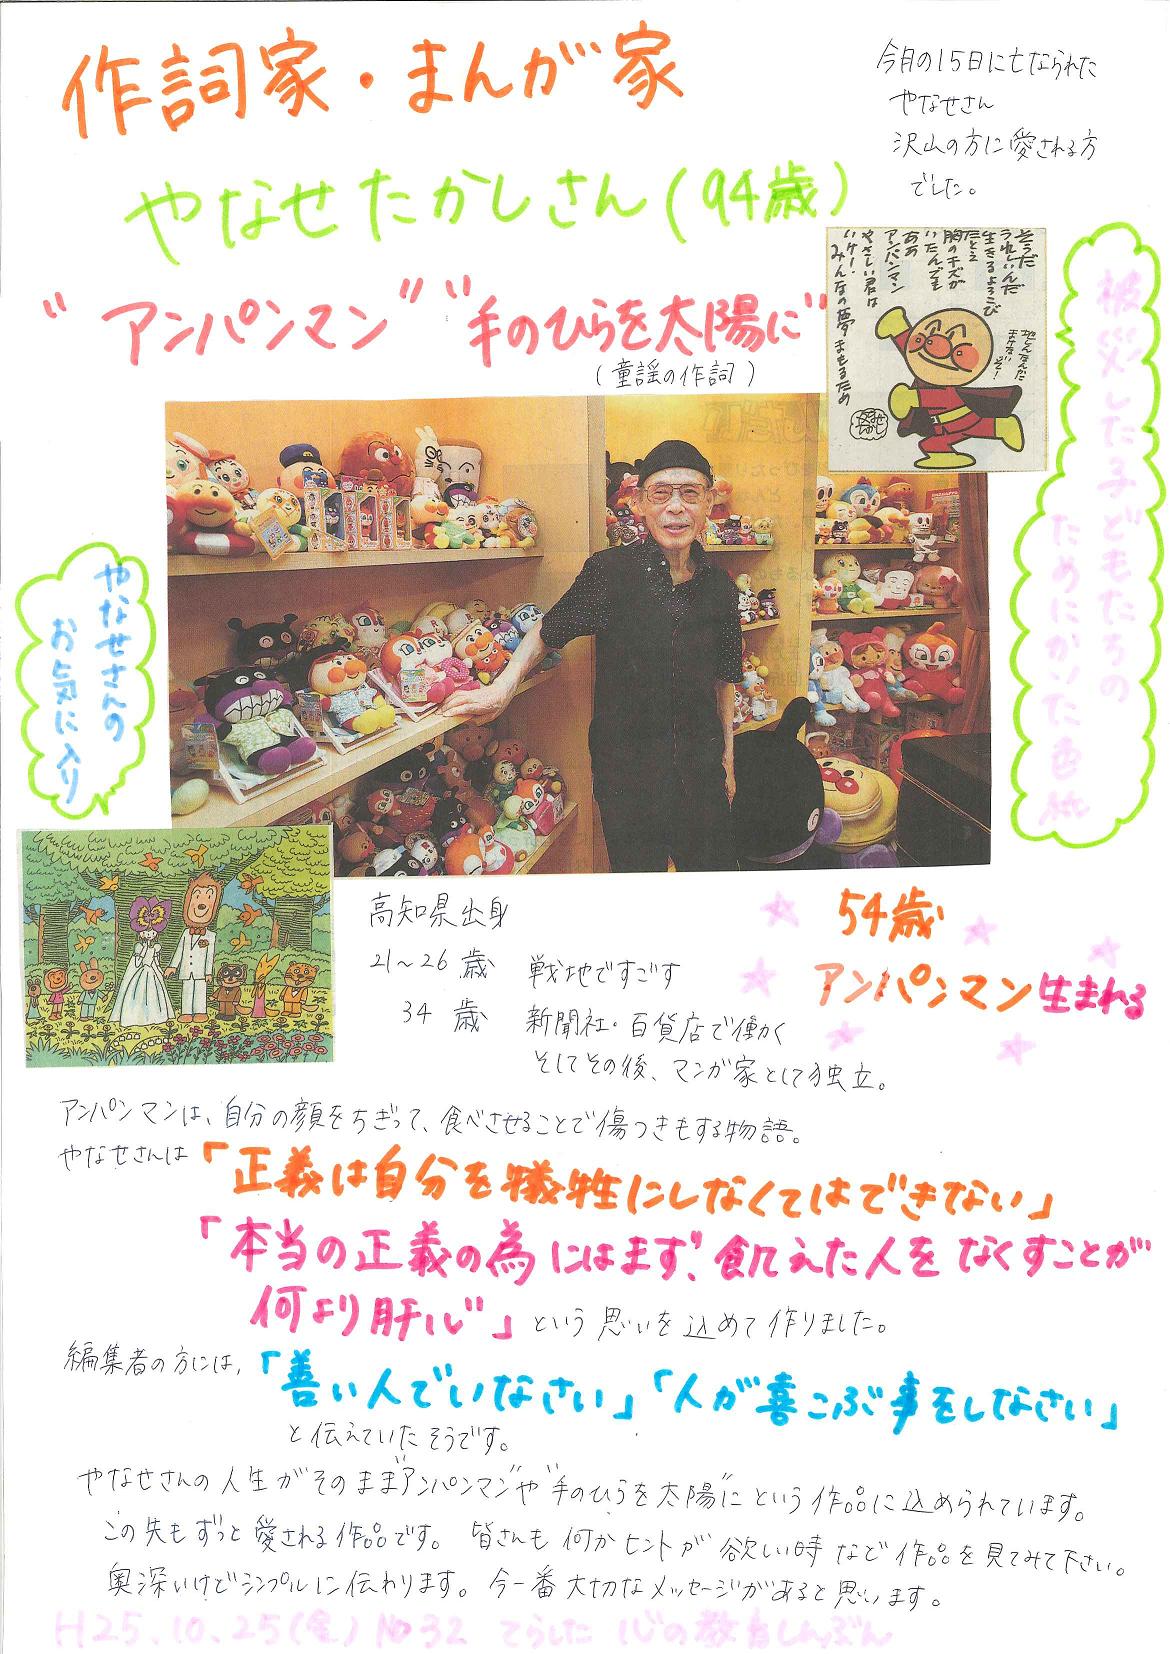 作詞家・まんが家
今月の15日に亡なられた
やなせさん
沢山の方に愛される方
でした。
やなせたかしさん(94歳)
"アンパンマン" "手のひらを太陽に"
(童謡の作詞)
そうだ
うれしいんだ
生きるよろこび
たとえ
胸のキズが
いたんでも
ああ
アンパンマン
やさしい君は
いけ!
みんなの夢まもるため
被災した子どもたちの
ために かいた色紙
やなせさんの
お気に入り
高知県出身
21~26歳 戦地ですごす
34歳 新聞社・百貨店で働く
そしてその後、マンガ家として独立。
54歳
アンパンマン生まれる
アンパンマンは、自分の顔をちぎって、食べさせることで傷つきもする物語。
やなせさんは「正義は自分を犠牲にしなくてはできない」
「本当の正義の為にはまず、飢えた人をなくすことが
何より肝心」という思いを込めて作りました。
編集者の方には、「善い人でいなさい」「人が喜こぶ事をしなさい」
と伝えていたそうです。
やなせさんの人生がそのまま"アンパンマン"や"手のひらを太陽に"という作品に込められています。
この先もずっと愛される作品です。皆さんも何かヒントが欲しい時など作品を見てみて下さい。
奥深いけどシンプルに伝わります。今一番大切なメッセージがあると思います。
H25.10.25(金) No32 てらした 心の教育しんぶん